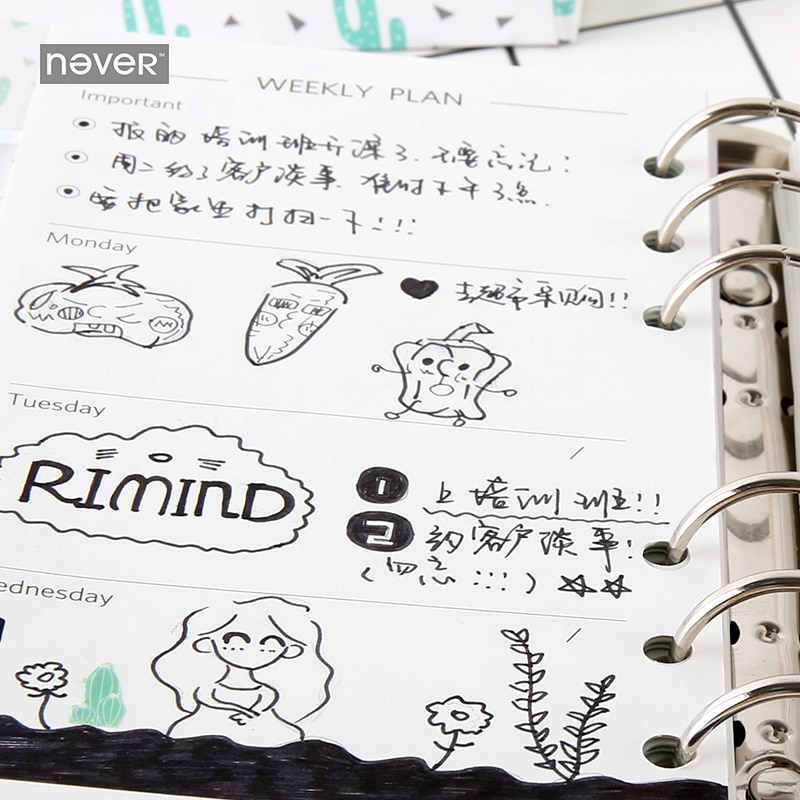 never™
WEEKLY PLAN
Important
报的培训班开课了、不要忘记！
周二约了客户谈事、准时下午3点.
要把家里打扫一下!!!
Monday
去超市采购!!
Tuesday
RIMIND
1 上培训班!!
2 约客户谈事!
(勿忘!!!)
ednesday